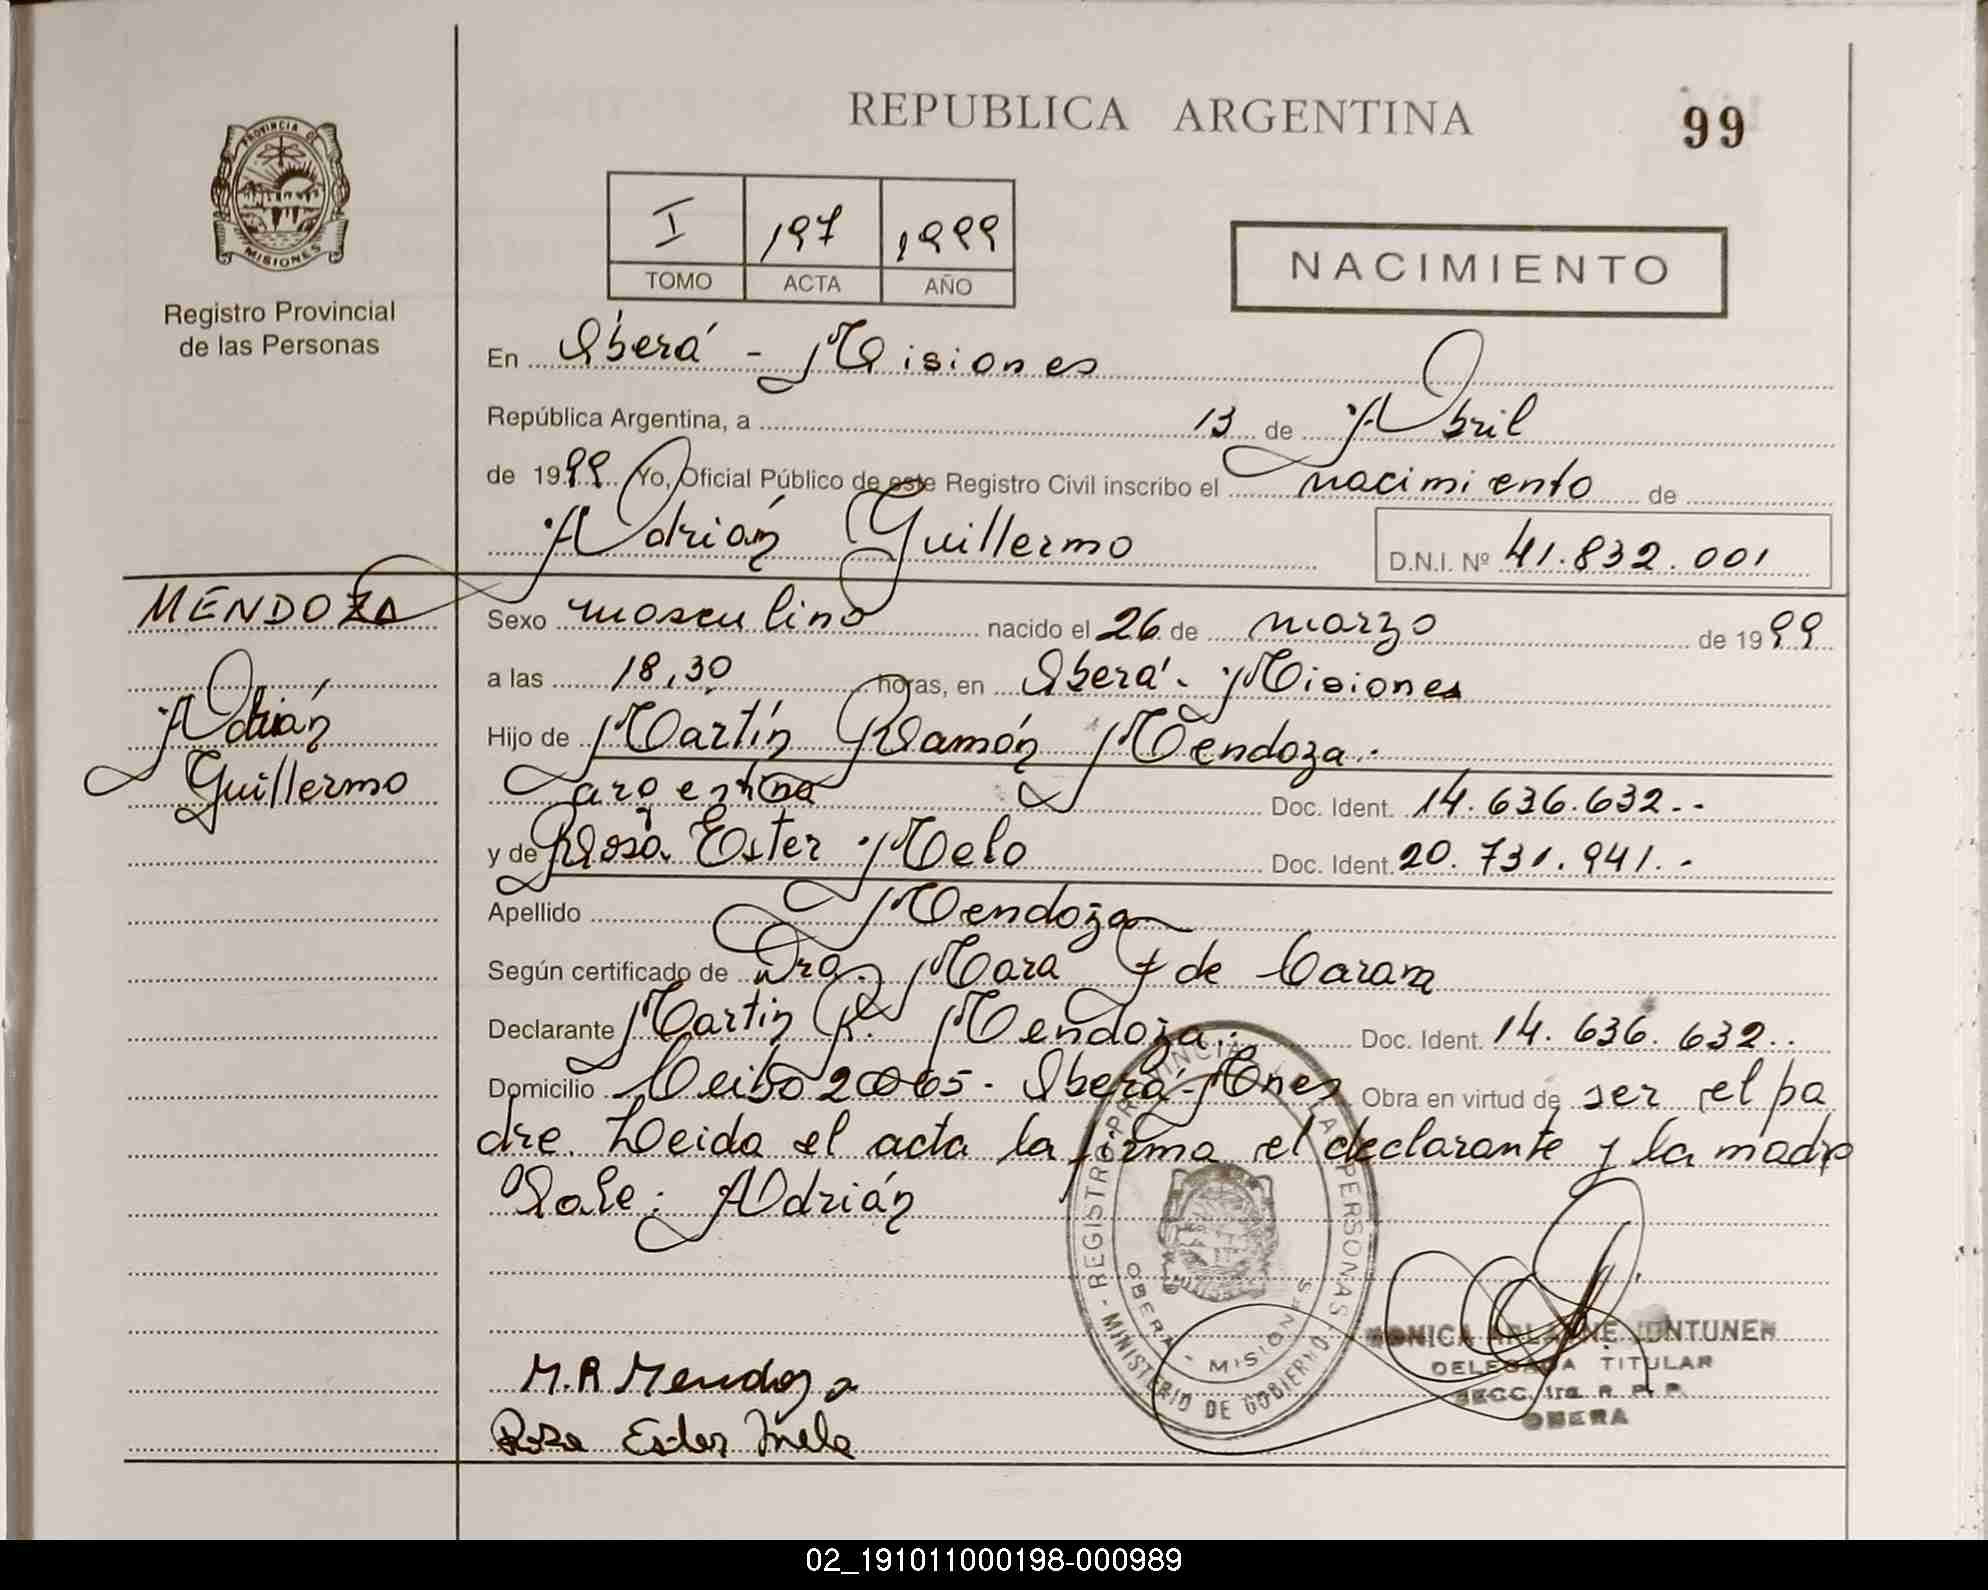 REPUBLICA ARGENTINA
99
PROVINCIA DE
MISIONES
Registro Provincial
de las Personas
I 197 1999
TOMO ACTA AÑO
NACIMIENTO
En Oberá - Misiones
República Argentina, a 13 de Abril
de 1999 Yo, Oficial Público de este Registro Civil inscribo el nacimiento de
Adrián Guillermo D.N.I. Nº 41.832.001
MENDOZA
Adrián
Guillermo
Sexo masculino nacido el 26 de marzo de 1999
a las 18,30 horas, en Oberá - Misiones
Hijo de Martín Ramón Mendoza.-
argentina Doc. Ident. 14.636.632.-
y de Rosa Ester Melo Doc. Ident. 20.731.941.-
Apellido Mendoza
Según certificado de Dra. Mara de Caram
Declarante Martín R. Mendoza.- Doc. Ident. 14.636.632..
Domicilio Ceibo 20065 - Oberá - Mnes Obra en virtud de ser el pa
dre. Leida el acta la firma el declarante y la madre
Vale: Adrián
M.R Mendoza
Rosa Ester Melo
REGISTRO PROVINCIAL DE LAS PERSONAS - MINISTERIO DE GOBIERNO
OBERA - MISIONES
DELEGADA TITULAR
SECC. 1ra R. P. P.
OBERA
02_191011000198-000989